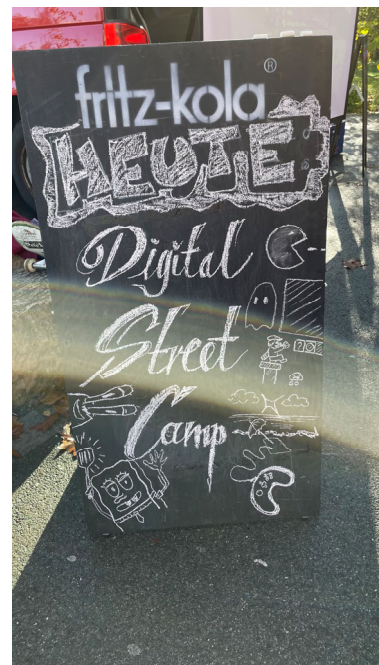 fritz-kola®
HEUTE
Digital
Street
Camp